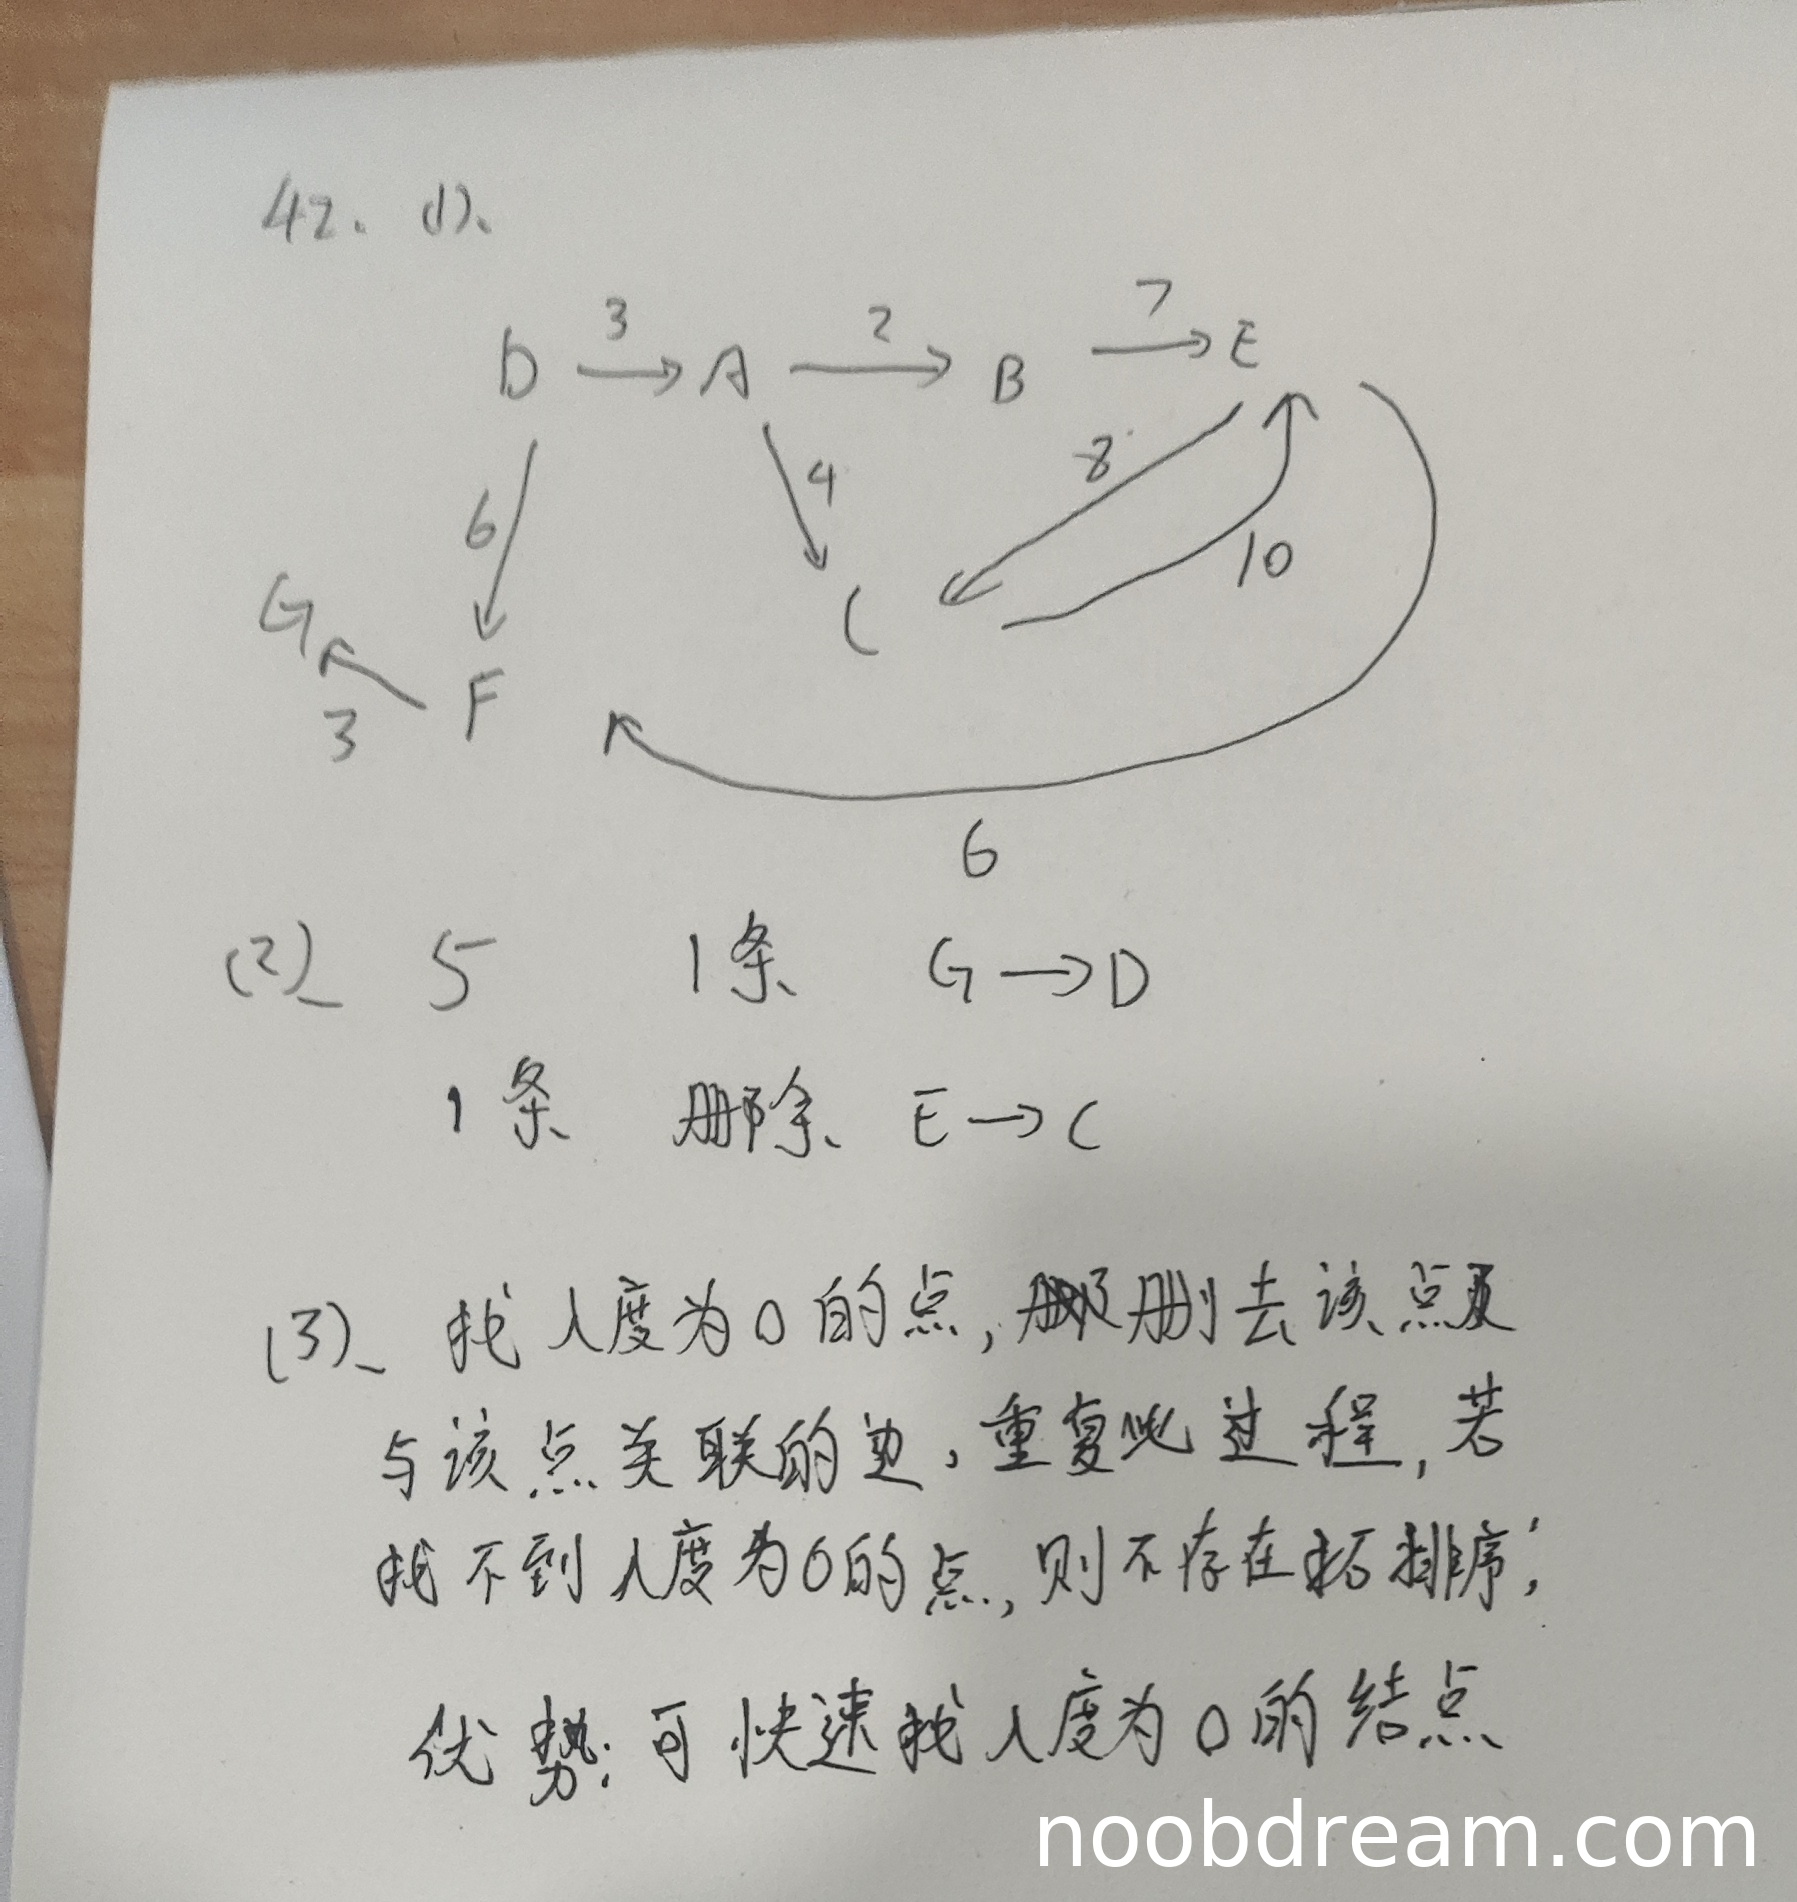 42. (1)、
D 3 A 2 B 7 E
6 4 8 10
G F C
3
6
(2)、 5 1条 G→D
1条 删除 E→C
(3)、找入度为0的点, 删去该点及
与该点关联的边,重复此过程,若
找不到入度为0的点,则不存在拓排序;
优势:可快速找入度为0的结点
noobdream.com